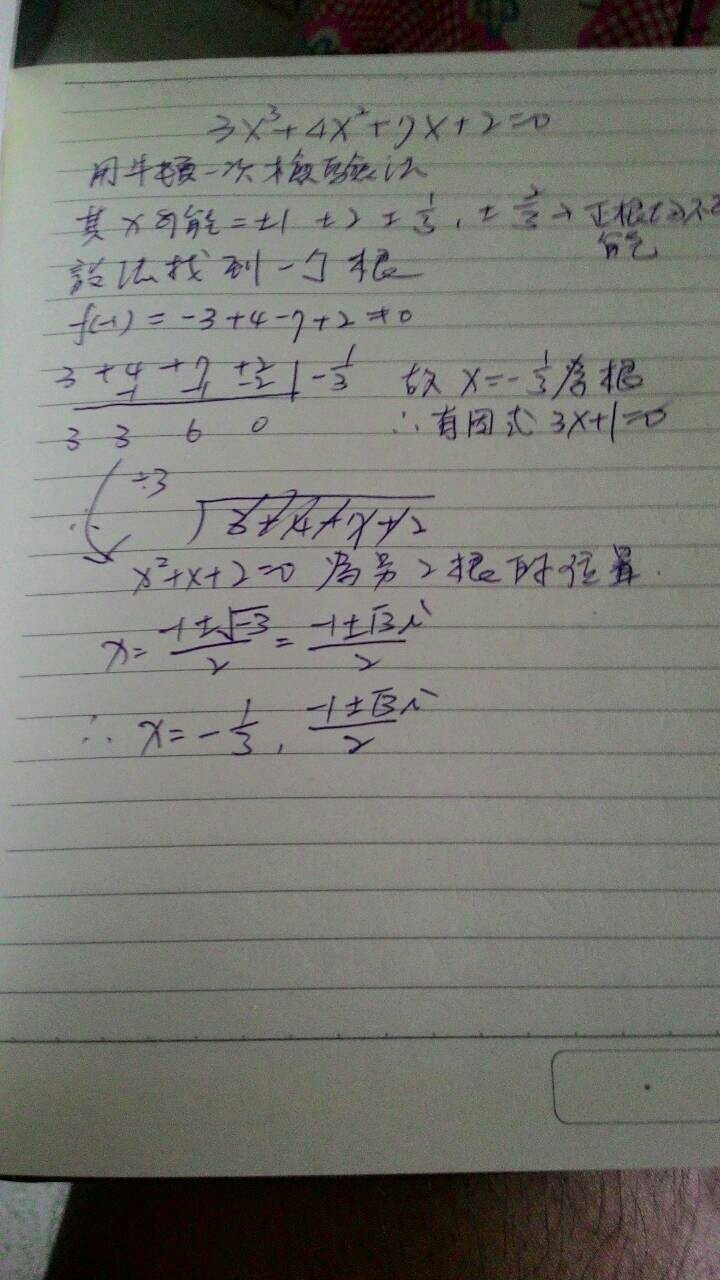 3x³+4x²+7x+2=0
用牛頓一次檢驗法
其x可能=±1 ±2 ±1/3, ±2/3 → 正根 不可能
設法找到一个根
f(-1) = -3+4-7+2≠0
3 +4 +7 +2 | -1/3 故 x=-1/3 為根
-1 -1 -2 ∴有因式 3x+1=0
3 3 6 0
÷3
3+4+7+2
x²+x+2=0 為另2根的位置.
x= (-1±√-3)/2 = (-1±√3i)/2
∴ x=-1/3, (-1±√3i)/2